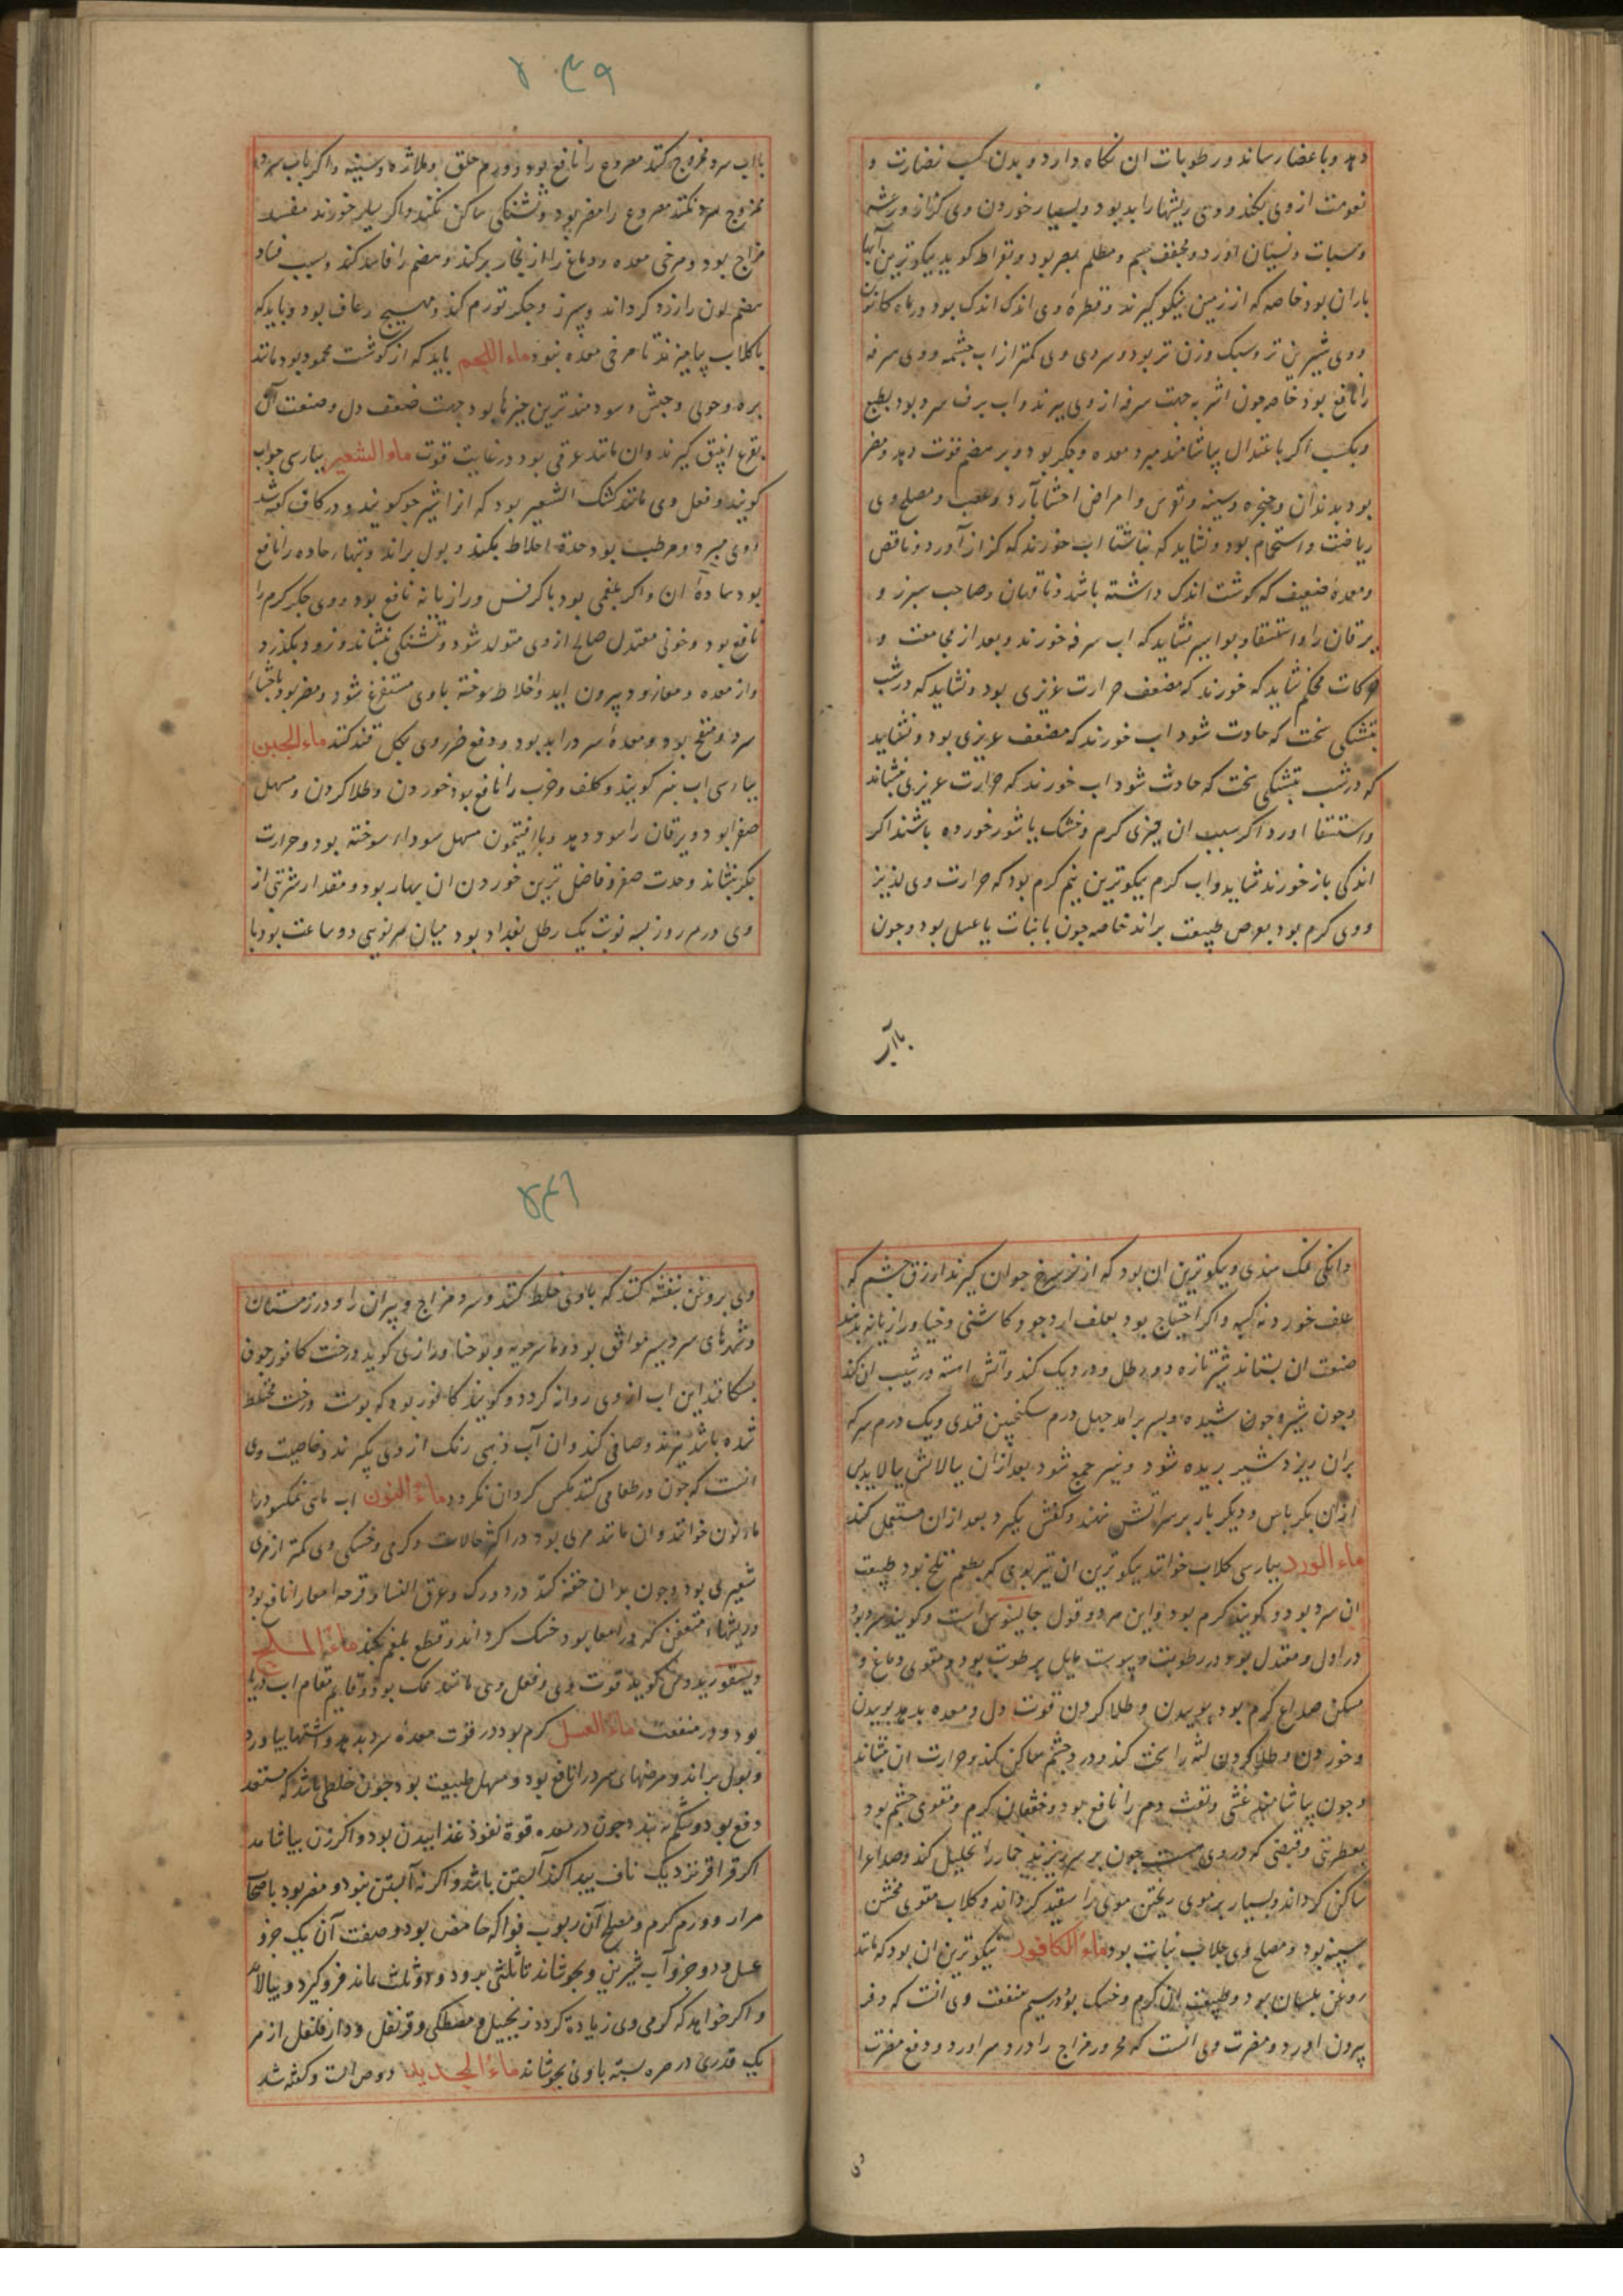 دهد و باعضا رساند و رطوبات ان نکاه دارد و بدن کسب نضارت و
نعومت از وی بکند و وی ریشها را بد بود و بسیار خوردن وی کزاز و رعشه
و سبات و نسیان اورد و مجفف جسم و مظلم بصر بود و بقراط کوید نیکوترین آبها
باران بود خاصه که از زمین نیکو کیرند و قطرهٔ وی اندک اندک بود و در ماه کانون
و وی شیرین تر و سبک وزن تر بود و سردی وی کمتر از اب چشمه و وی سرفه
را نافع بود خاصه چون اشربه جهت سرفه از وی پزند و اب برف سرد بود بطبع
و بکسب اکر باعتدال بیاشامند مبرد معده و جکر بود و بر هضم قوت دهد و مضر
بود بدندان و حنجره و سینه و قوس و امراض احشا بآرد و عصب و مصلح وی
ریاضت و استحمام بود و نشاید که بناشتا اب خورند که کزاز آورد و ناقص
و معدهٔ ضعیف که کوشت اندک داشته باشد و ناقهان و صاحب سپرز و
یرقان را و استسقا و بواسیر نشاید که اب سرفه خورند و بعد از مجامعت و
حرکات محکم نشاید که خورند که مضعف حرارت غریزی بود و نشاید که در شب
بتشنکی سخت که حادث شود اب خورند که مضعف غریزی بود و نشاید
که در شب بتشنکی سخت که حادث شود اب خورند که حرارت غریزی بنشاند
و استسقا اورد اکر سبب ان چیزی کرم و خشک یا شور خورده باشند اکر
اندکی باز خورند شاید و اب کرم نیکوترین نیم کرم بود که حرارت وی لذیذ
و وی کرم بود بعرض طبیعت براند خاصه چون با نبات یا عسل بود و چون
باآب
بااب سرد ممزوج کنند مصروع را نافع بود و ورم حلق و ملازه و سینه و اکر باب سرد
ممزوج سرد نکنند مصروع را مضر بود و تشنکی ساکن نکند و اکر بسیار خورند مفسد
مزاج بود و مرخی معده و دماغ را از بخار پر کند و هضم را فاسد کند و سبب فساد
هضم لون را زرد کرداند و سپرز و جکر تورم کند و مهیج رعاف بود و باید که
با کلاب بیامیزند تا مرخی معده نبود ماء اللحم باید که از کوشت محمود بود مانند
بره و حولی و جبش و سودمندترین چیزها بود جهت ضعف دل و صنعت آن
بقرع انبیق کیرند و ان مانند عرقی بود در غایت قوت ماء الشعیر بپارسی جواب
کویند و فعل وی مانند کشک الشعیر بود که انرا شیر جو کویند و در کاف کفته شد
و وی مبرد و مرطب بود حدة اخلاط بکند و بول براند و تبهاء حاده را نافع
بود ساده ان و اکر بلغمی بود با کرفس و رازیانه نافع بود و وی جکر کرم را
نافع بود و خونی معتدل صالح از وی متولد شود و تشنکی بنشاند و زود بکذرد
و از معده و معا زود بیرون اید و اخلاط سوخته باوی مستفرغ شود و مضر بود باحشاء
سرد و منفخ بود و معدهٔ سرد را بد بود و دفع ضرر وی بکل قند کنند ماء الجبن
بپارسی اب پنیر کویند و کلف و جرب را نافع بود خوردن و طلا کردن و مسهل
صفرا بود و یرقان را سود دهد و با افتیمون مسهل سوداء سوخته بود و حرارت
جکر بنشاند و حدت صفرا و فاضل ترین خوردن ان بهار بود و مقدار شربتی از
وی در هر روز بسه نوبت یک رطل بغداد بود میان هر نوبتی دو ساعت بود با
دانکی نمک هندی و نیکوترین ان بود که از بز سرخ جوان کیرند ازرق چشم که
علف خورد و نه کسبه و اکر احتیاج بود بعلف ارد جو و کاسنی و خیار و رازیانه بدهند
صنعت ان بستاند شیر تازه دو رطل و در دیک کند و آتش اهسته در شیب ان کند
و چون شیره جوش شیده و بسر برامد چهل درم سکنجبین قندی و یک درم سرکه
بران ریزد شیر بریده شود و پنیر جمع شود بعد ازان بپالانش بپالایند پس
ازان بکرباس و دیکر بار بر سر اتش نهند و کفش بکیرد بعد ازان مستعمل کند
ماء الورد بپارسی کلاب خوانند نیکوترین ان تیزبوی که بطعم تلخ بود طبیعت
ان سرد بود و کویند کرم بود و این هر دو قول جالینوس است و کویند سرد بود
در اول و معتدل بود در رطوبت و یبوست مایل برطوبت بود و مقوی دماغ و
مسکن صداع کرم بود بوییدن و طلا کردن قوت دل و معده بدهد بوییدن
و خوردن و طلا کردن لثه را سخت کند و درد چشم ساکن کند و حرارت ان بنشاند
و چون بیاشامند غشی و نفث دم را نافع بود و خفقان کرم و مقوی جسم بود
بعطریتی و قبضی که در وی هست چون بر سر ریزند خمار را تحلیل کند و صداع را
ساکن کرداند و بسیار بر موی ریختن موی را سفید کرداند و کلاب مقوی مخشن
سینه بود و مصلح وی جلاب نبات بود ماء الکافور نیکوترین ان بود که مانند
روغن بلسان بود و طبیعت ان کرم و خشک بود در سیم منفعت وی انست که دفر
بیرون اورد و مضرت وی انست که محرور مزاج را درد سر اورد و دفع مضرت
وی
وی بروغن بنفشه کنند که باوی خلط کنند و سرد مزاج و پیران را و در زمستان
و شهرهای سردسیر موافق بود و ماسرجویه و یوحنا و رازی کوید درخت کافور چون
بشکافند این اب از وی روانه کردد و کویند کافور بود که بپوست درخت مختلط
شده باشد بپزند و صافی کنند و ان آب ذهبی رنک از وی بکیرند و خاصیت وی
انست که چون در طعامی کنند مکس کرد ان نکردد ماء النون اب ماهی نمکسود را
ماء نون خوانند و ان مانند مری بود در اکثر حالات و کرمی و خشکی وی کمتر از مری
شعیری بود و چون بدان حقنه کنند درد ورک و عرق النسا و قرحه امعا را نافع بود
و ریشهاء متعفن که در امعا بود خشک کرداند و قطع بلغم بکند ماء الملح
دیسقوریدوس کوید قوت وی و فعل وی مانند نمک بود و قایم مقام اب دریا
بود در منفعت ماء العسل کرم بود در قوت معدهٔ سرد بدهد و اشتها بیاورد
و بول براند و مرضهای سرد را نافع بود و مسهل طبیعت بود چون خلطی باشد که مستعد
دفع بود و شکم نه بندد چون در معده قوة نفوذ غذا بیدن بود و اکر زن بیاشامد
اکر قراقر نزدیک ناف پیدا کند آبستن باشد و اکر نه آبستن نبود و مضر بود باصحاب
مرار و ورم کرم و مصلح آن ربوب فواکه حامض بود و صفت آن یک جزو
عسل و دو جزو آب شیرین و بجوشاند تا ثلثی برود و دو ثلث بماند فروکیرد و بپالاید
و اکر خواهد که کرمی وی زیاده کردد زنجبیل و مصطکی و قرنفل و دارفلفل از هر
یک قدری در صره بسته باوی بجوشاند ماء الحدید دوص است و کفته شد